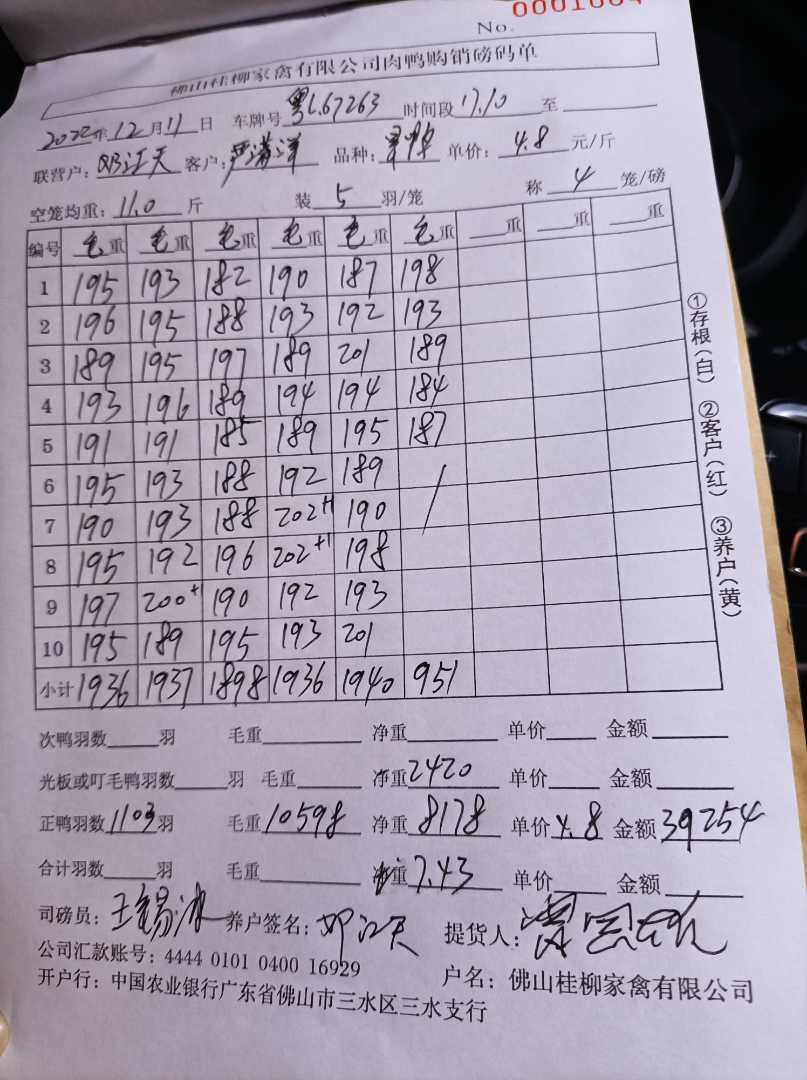 No. 0001004
佛山桂柳家禽有限公司肉鸭购销磅码单
2022年12月11日 车牌号粤L67263 时间段17.10 至
联营户:邓江天 客户: 品种: 单价: 4.8 元/斤
空笼均重: 11.0 斤 装 5 羽/笼 称 4 笼/磅
编号 毛重 毛重 毛重 毛重 毛重 毛重 重 重 重
1 195 193 182 190 187 198
2 196 195 188 193 192 193
3 189 195 197 189 201 189
4 193 196 189 194 194 184
5 191 191 185 189 195 187
6 195 193 188 192 189 /
7 190 193 188 202+1 190
8 195 192 196 202+1 198
9 197 200+1 190 192 193
10 195 189 195 193 201
小计 1936 1937 1898 1936 1940 951
①存根(白) ②客户(红) ③养户(黄)
次鸭羽数 羽 毛重 净重 单价 金额
光板或叮毛鸭羽数 羽 毛重 净重2420 单价 金额
正鸭羽数1103羽 毛重10598 净重8178 单价4.8 金额39254
合计羽数 羽 毛重 净重7.43 单价 金额
司磅员: 王锡冰 养户签名: 邓江天 提货人:
公司汇款账号: 4444 0101 0400 16929 户名: 佛山桂柳家禽有限公司
开户行: 中国农业银行广东省佛山市三水区三水支行